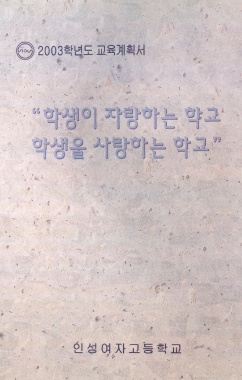 2003학년도 교육계획서
“학생이 자랑하는 학교
학생을 사랑하는 학교”
인성여자고등학교